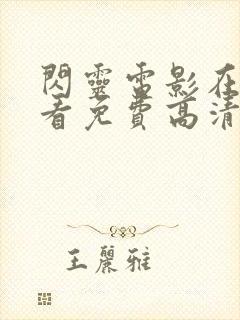 閃靈電影在
看免費高清
王麗雅